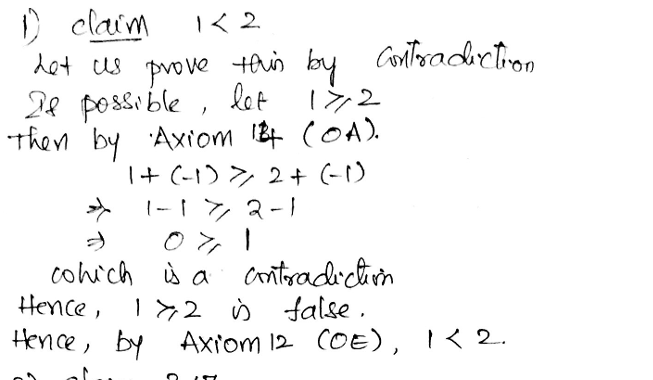 1) claim 1 < 2
Let us prove this by contradiction
If possible, let 1 ⩾ 2
then by Axiom 14 (OA).
1 + (-1) ⩾ 2 + (-1)
⇒ 1-1 ⩾ 2-1
⇒ 0 ⩾ 1
which is a contradiction
Hence, 1 ⩾ 2 is false.
Hence, by Axiom 12 (OE), 1 < 2.